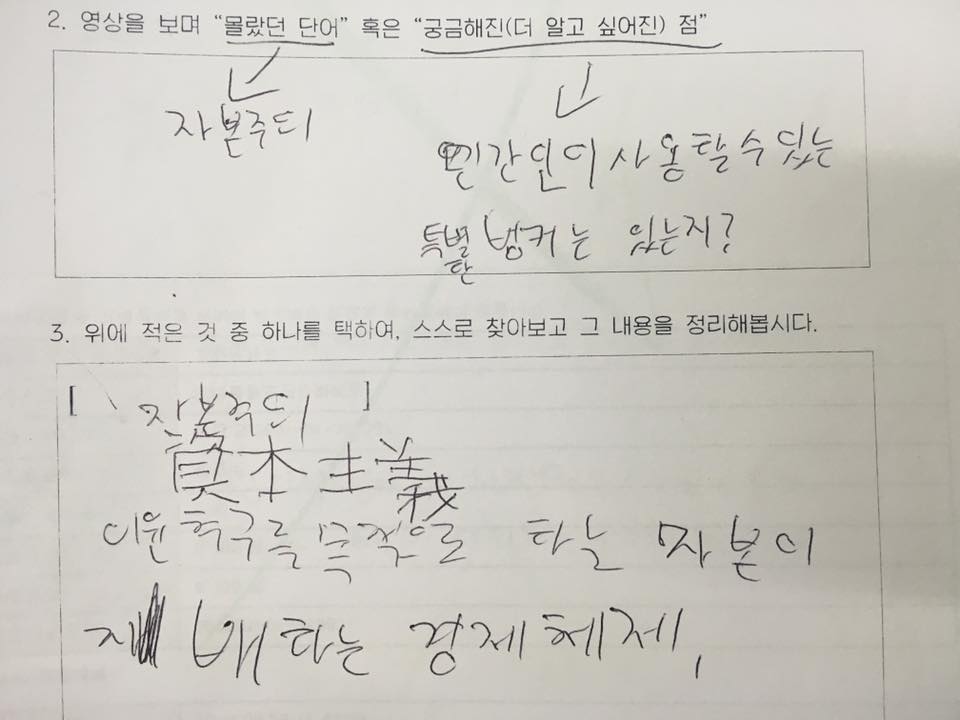 2. 영상을 보며 “몰랐던 단어” 혹은 “궁금해진(더 알고 싶어진) 점”
자본주의
민간인이 사용할 수 있는
특별한 벙커는 있는지?
3. 위에 적은 것 중 하나를 택하여, 스스로 찾아보고 그 내용을 정리해봅시다.
[ 자본주의 ]
資本主義
이윤추구를 목적으로 하는 자본이
지배하는 경제체제,